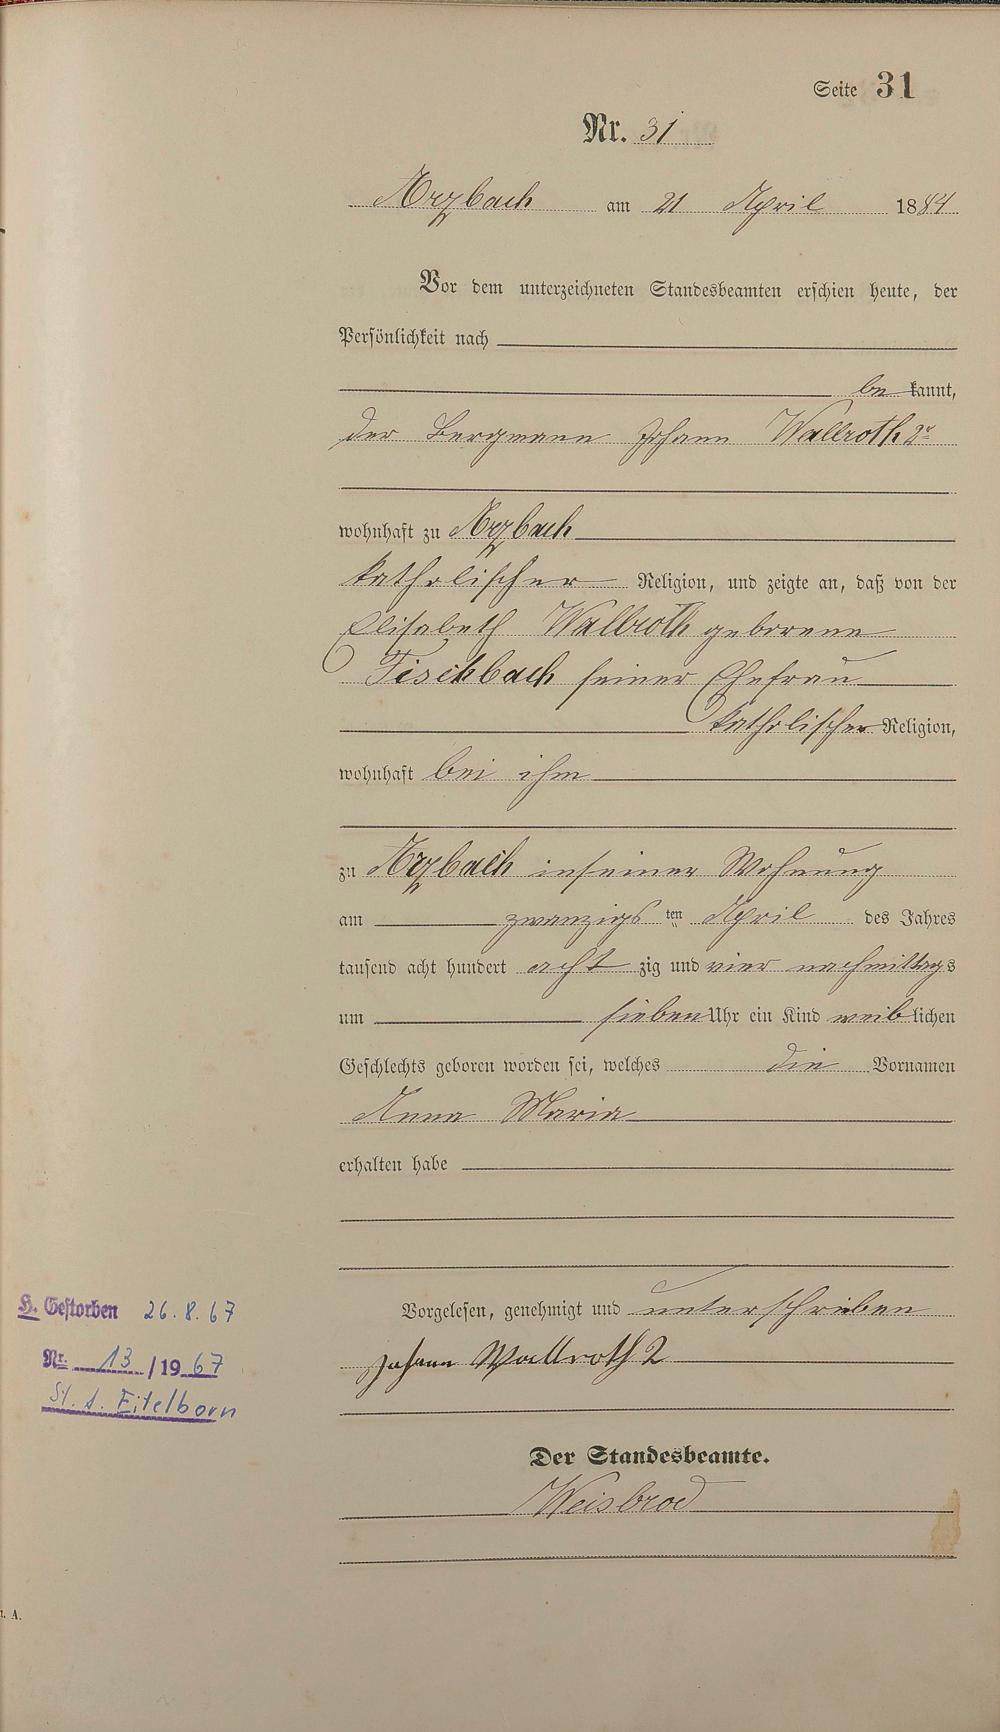 Seite 31
Nr. 31
Arzbach am 21 April 1884
Vor dem unterzeichneten Standesbeamten erschien heute, der
Persönlichkeit nach
be kannt,
der Bergmann Johann Wallroth 2r
wohnhaft zu Arzbach
katholischer Religion, und zeigte an, daß von der
Elisabeth Wallroth geborene
Fischbach seiner Ehefrau
katholischer Religion,
wohnhaft bei ihm
zu Arzbach in seiner Wohnung
am zwanzigs ten April des Jahres
tausend acht hundert acht zig und vier nachmittags
um sieben Uhr ein Kind weib lichen
Geschlechts geboren worden sei, welches die Vornamen
Anna Maria
erhalten habe
Vorgelesen, genehmigt und unterschrieben
Johann Wallroth 2
Der Standesbeamte.
Weisbrod
H. Gestorben 26.8.67
Nr. 13 /1967
St. A. Eitelborn
A.